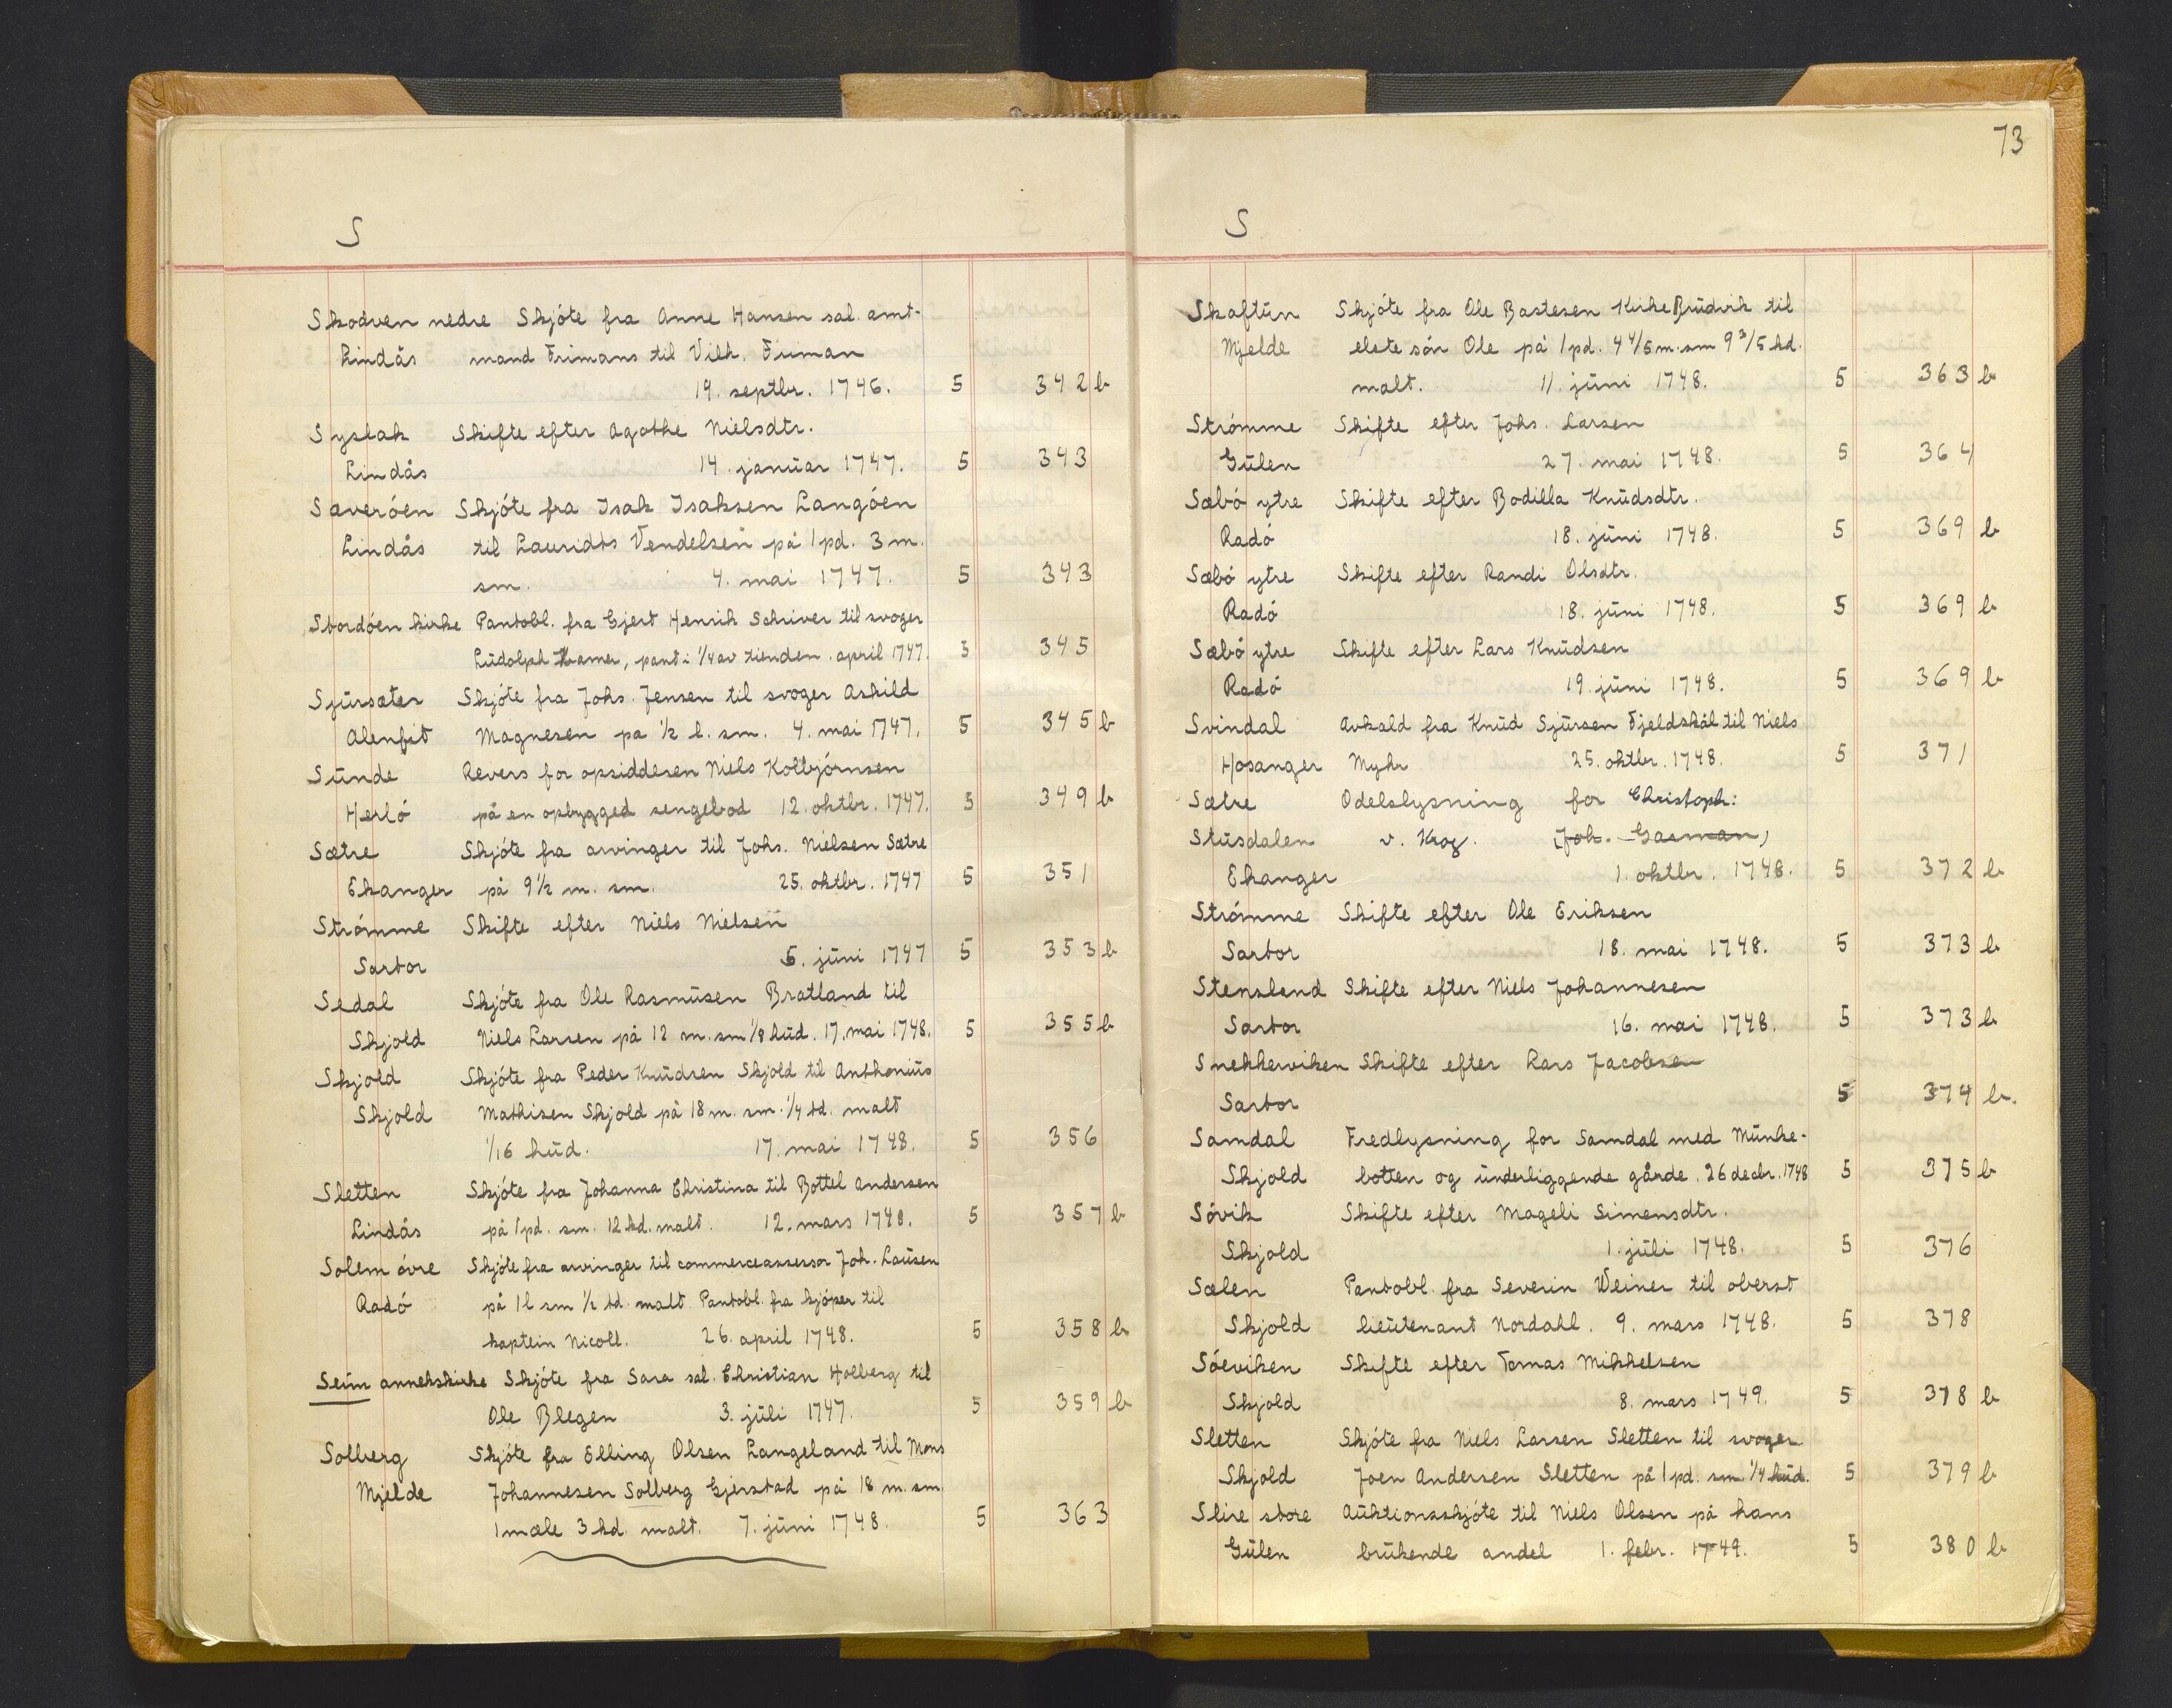 S
Skodven nedre Skjóte fra Anne Hansen sal. amt-
Lindås mand Frimans til Vilh. Friman
19. septbr. 1746. 5 342 b
Syslak Skifte efter Agathe Nielsdtr.
Lindås 14. januar 1747. 5 343
Saveróen Skjóte fra Isak Isaksen Langóen
Lindås til Lauridts Vendelsen på 1 pd. 3 m.
sm. 4. mai 1747. 5 343
Stordóen kirke Pantobl. fra Gjert Henrik Schriver til svoger
Lŭdolph Kramer, pant i 1/4 av tienden. april 1747. 5 345
Sjŭrsæter Skjóte fra Johs. Jensen til svoger Askild
Alenfit Magnesen på 1/2 l. sm. 4. mai 1747. 5 345 b
Sŭnde Revers for opsiddesen Niels Kolbjórnsen
Herló på en opbygged sengebod 12. oktbr. 1747. 5 349 b
Sætre Skjóte fra arvinger til Johs. Nielsen Sætre
Ekanger på 9 1/2 m. sm. 25. oktbr. 1747 5 351
Strómme Skifte efter Niels Nielsen
Sartor 6. jŭni 1747 5 353 b
Sedal Skjóte fra Ole Rasmŭsen Bratland til
Skjold Niels Larsen på 12 m. sm 1/8 hŭd. 17. mai 1748. 5 355 b
Skjold Skjóte fra Peder Knŭdsen Skjold til Anthoniŭs
Skjold Mathisen Skjold på 18 m. sm. 1/4 td. malt
1/16 hŭd. 17. mai 1748. 5 356
Sletten Skjóte fra Johanna Christina til Bottel Andersen
Lindås på 1 pd. sm. 12 kd. malt. 12. mars 1748. 5 357 b
Solem óvre Skjóte fra arvinger til commerceassessor Joh. Laŭsen
Radó på 1 l sm 1/2 td. malt Pantobl. fra kjóper til
kaptein Nicoll. 26. april 1748. 5 358 b
Seim annekskirke Skjóte fra Sara sal. Christian Holberg til
Ole Blegen 3. jŭli 1747. 5 359 b
Solberg Skjóte fra Elling Olsen Langeland til Mons
Mjelde Johannesen Solberg Gjerstad på 18 m. sm.
1 mæle 3 kd. malt. 7. jŭni 1748. 5 363
73
S
Skaftŭn Skjóte fra Ole Bastesen Kirke Brŭdvik til
Mjelde elste són Ole på 1 pd. 4 4/5 m. sm 9 3/5 kd.
malt. 11. jŭni 1748. 5 363 b
Strómme Skifte efter Johs. Larsen
Gŭlen 27. mai 1748. 5 364
Sæbó ytre Skifte efter Bodilla Knŭdsdtr.
Radó 18. jŭni 1748. 5 369 b
Sæbó ytre Skifte efter Randi Olsdtr.
Radó 18. jŭni 1748. 5 369 b
Sæbó ytre Skifte efter Lars Knŭdsen
Radó 19. jŭni 1748. 5 369 b
Svindal Avkald fra Knŭd Sjŭrsen Fjeldskål til Niels
Hosanger Myhr 25. oktbr. 1748. 5 371
Sætre Odelslysning for Christoph:
Stŭsdalen v. Krog. (Joh. Gasman)
Ekanger 1. oktbr. 1748. 5 372 b
Strómme Skifte efter Ole Eriksen
Sartor 18. mai 1748. 5 373 b
Stensland Skifte efter Niels Johannesen
Sartor 16. mai 1748. 5 373 b
Snekkerviken Skifte efter Lars Jacobsen
Sartor 5 374 b.
Samdal Fredlysning for Samdal med Mŭnke-
Skjold botten og ŭnderliggende gårde. 26 decbr. 1748 5 375 b
Sóvik Skifte efter Mageli Simensdtr.
Skjold 1. jŭli 1748. 5 376
Sælen Pantobl. fra Severin Weiner til oberst
Skjold lieŭtenant Nordahl. 9. mars 1748. 5 378
Sóeviken Skifte efter Tomas Mikkelsen
Skjold 8. mars 1749. 5 378 b
Sletten Skjóte fra Niels Larsen Sletten til svoger
Skjold Joen Andersen Sletten på 1 pd. sm. 1/4 hŭd. 5 379 b
Slire store Aŭktionsskjóte til Niels Olsen på hans
Gŭlen brŭkende andel 1. febr. 1749. 5 380 b